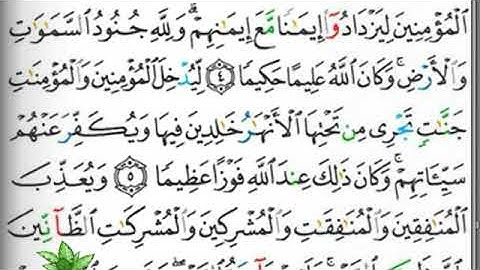 ٱلْمُؤْمِنِينَ لِيَزْدَادُوٓا۟ إِيمَٰنًا مَّعَ إِيمَٰنِهِمْ ۗ وَلِلَّهِ جُنُودُ ٱلسَّمَٰوَٰتِ
وَٱلْأَرْضِ ۚ وَكَانَ ٱللَّهُ عَلِيمًا حَكِيمًا ٤ لِّيُدْخِلَ ٱلْمُؤْمِنِينَ وَٱلْمُؤْمِنَٰتِ
جَنَّٰتٍ تَجْرِى مِن تَحْتِهَا ٱلْأَنْهَٰرُ خَٰلِدِينَ فِيهَا وَيُكَفِّرَ عَنْهُمْ
سَيِّـَٔاتِهِمْ ۚ وَكَانَ ذَٰلِكَ عِندَ ٱللَّهِ فَوْزًا عَظِيمًا ٥ وَيُعَذِّبَ
ٱلْمُنَٰفِقِينَ وَٱلْمُنَٰفِقَٰتِ وَٱلْمُشْرِكِينَ وَٱلْمُشْرِكَٰتِ ٱلظَّآنِّينَ